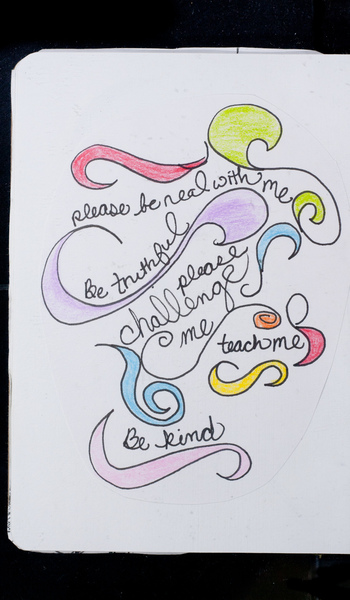 please be real with me
Be truthful
please
challenge
me
teach me
Be kind